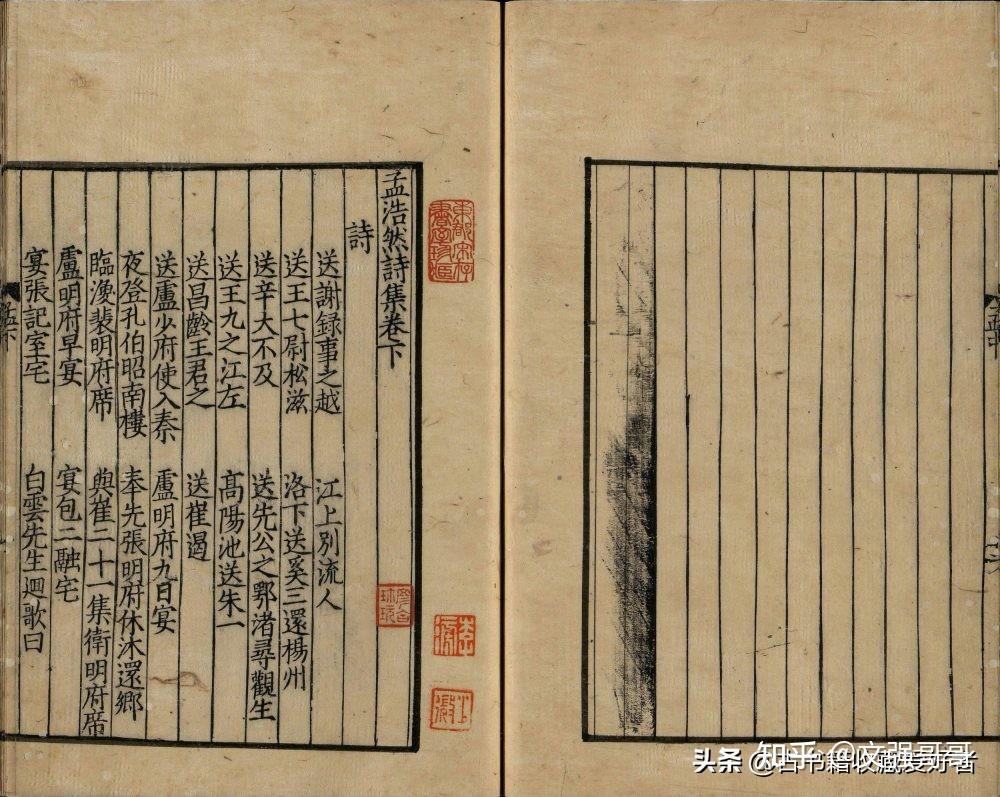 孟浩然詩集卷下
詩
送謝録事之越 江上別流人
送王七尉松滋 洛下送奚三還楊州
送辛大不及 送先公之鄂渚尋觀生
送王九之江左 高陽池送朱一
送昌齡王君之 送崔遏
送盧少府使入秦 盧明府九日宴
夜登孔伯昭南樓 奉先張明府休沐還鄉
臨渙裴明府席 與崔二十一集衛明府席
盧明府早宴 宴包二融宅
宴張記室宅 白雲先生迥歌曰
頭条 @古书籍收藏爱好者
知乎 @文强哥哥